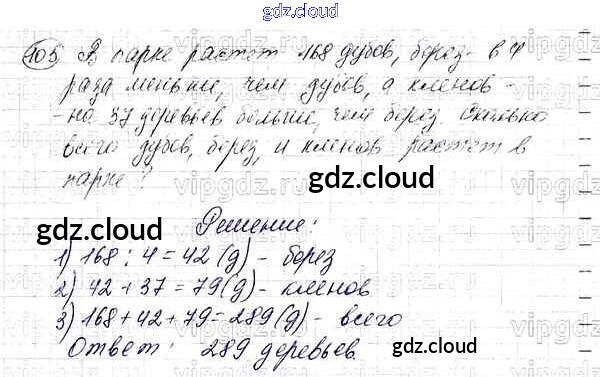 gdz.cloud
105 В парке растет 168 дубов, берез - в 4
раза меньше, чем дубов, а кленов -
- на 37 деревьев больше, чем берез. Сколько
всего дубов, берез, и кленов растет в
парке?
gdz.cloud
gdz.cloud
Решение:
1) 168 : 4 = 42 (д) - берез
2) 42 + 37 = 79 (д) - кленов
3) 168 + 42 + 79 = 289 (д) - всего
Ответ: 289 деревьев
gdz.cloud
gdz.cloud